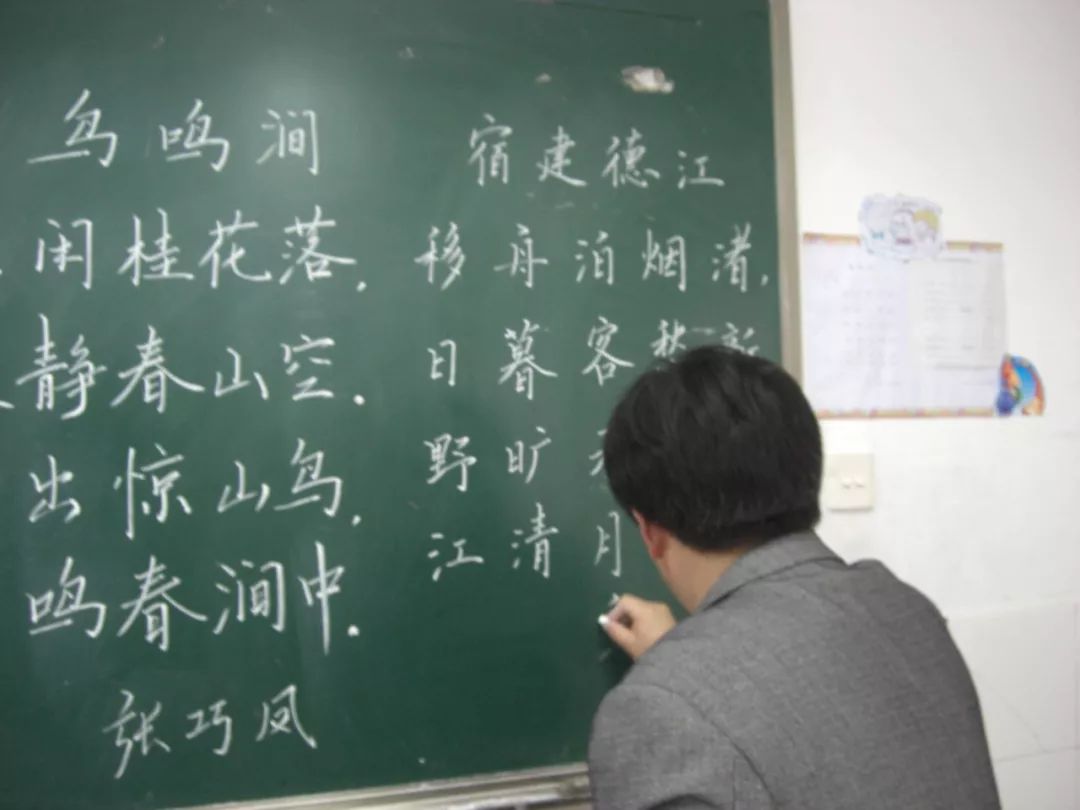 鸟鸣涧
闲桂花落，
静春山空.
出惊山鸟，
鸣春涧中.
张巧凤
宿建德江
移舟泊烟渚，
日暮客愁新
野旷
江清月